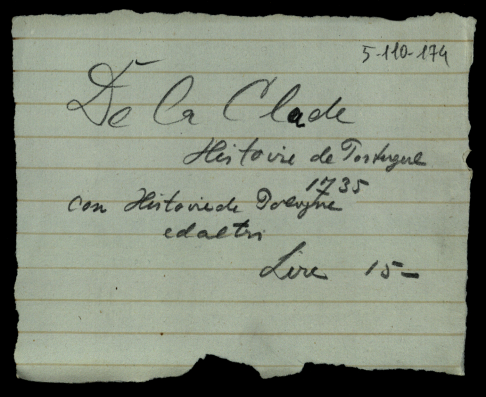 5-110-174
De la Clade
Histoire de Portugue
1735
con Histoire de Pologne
ed altri
Lire 15-